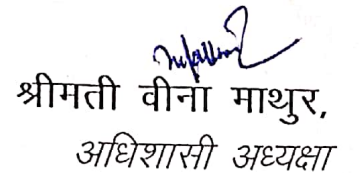 श्रीमती वीना माथुर,
अधिशासी अध्यक्षा